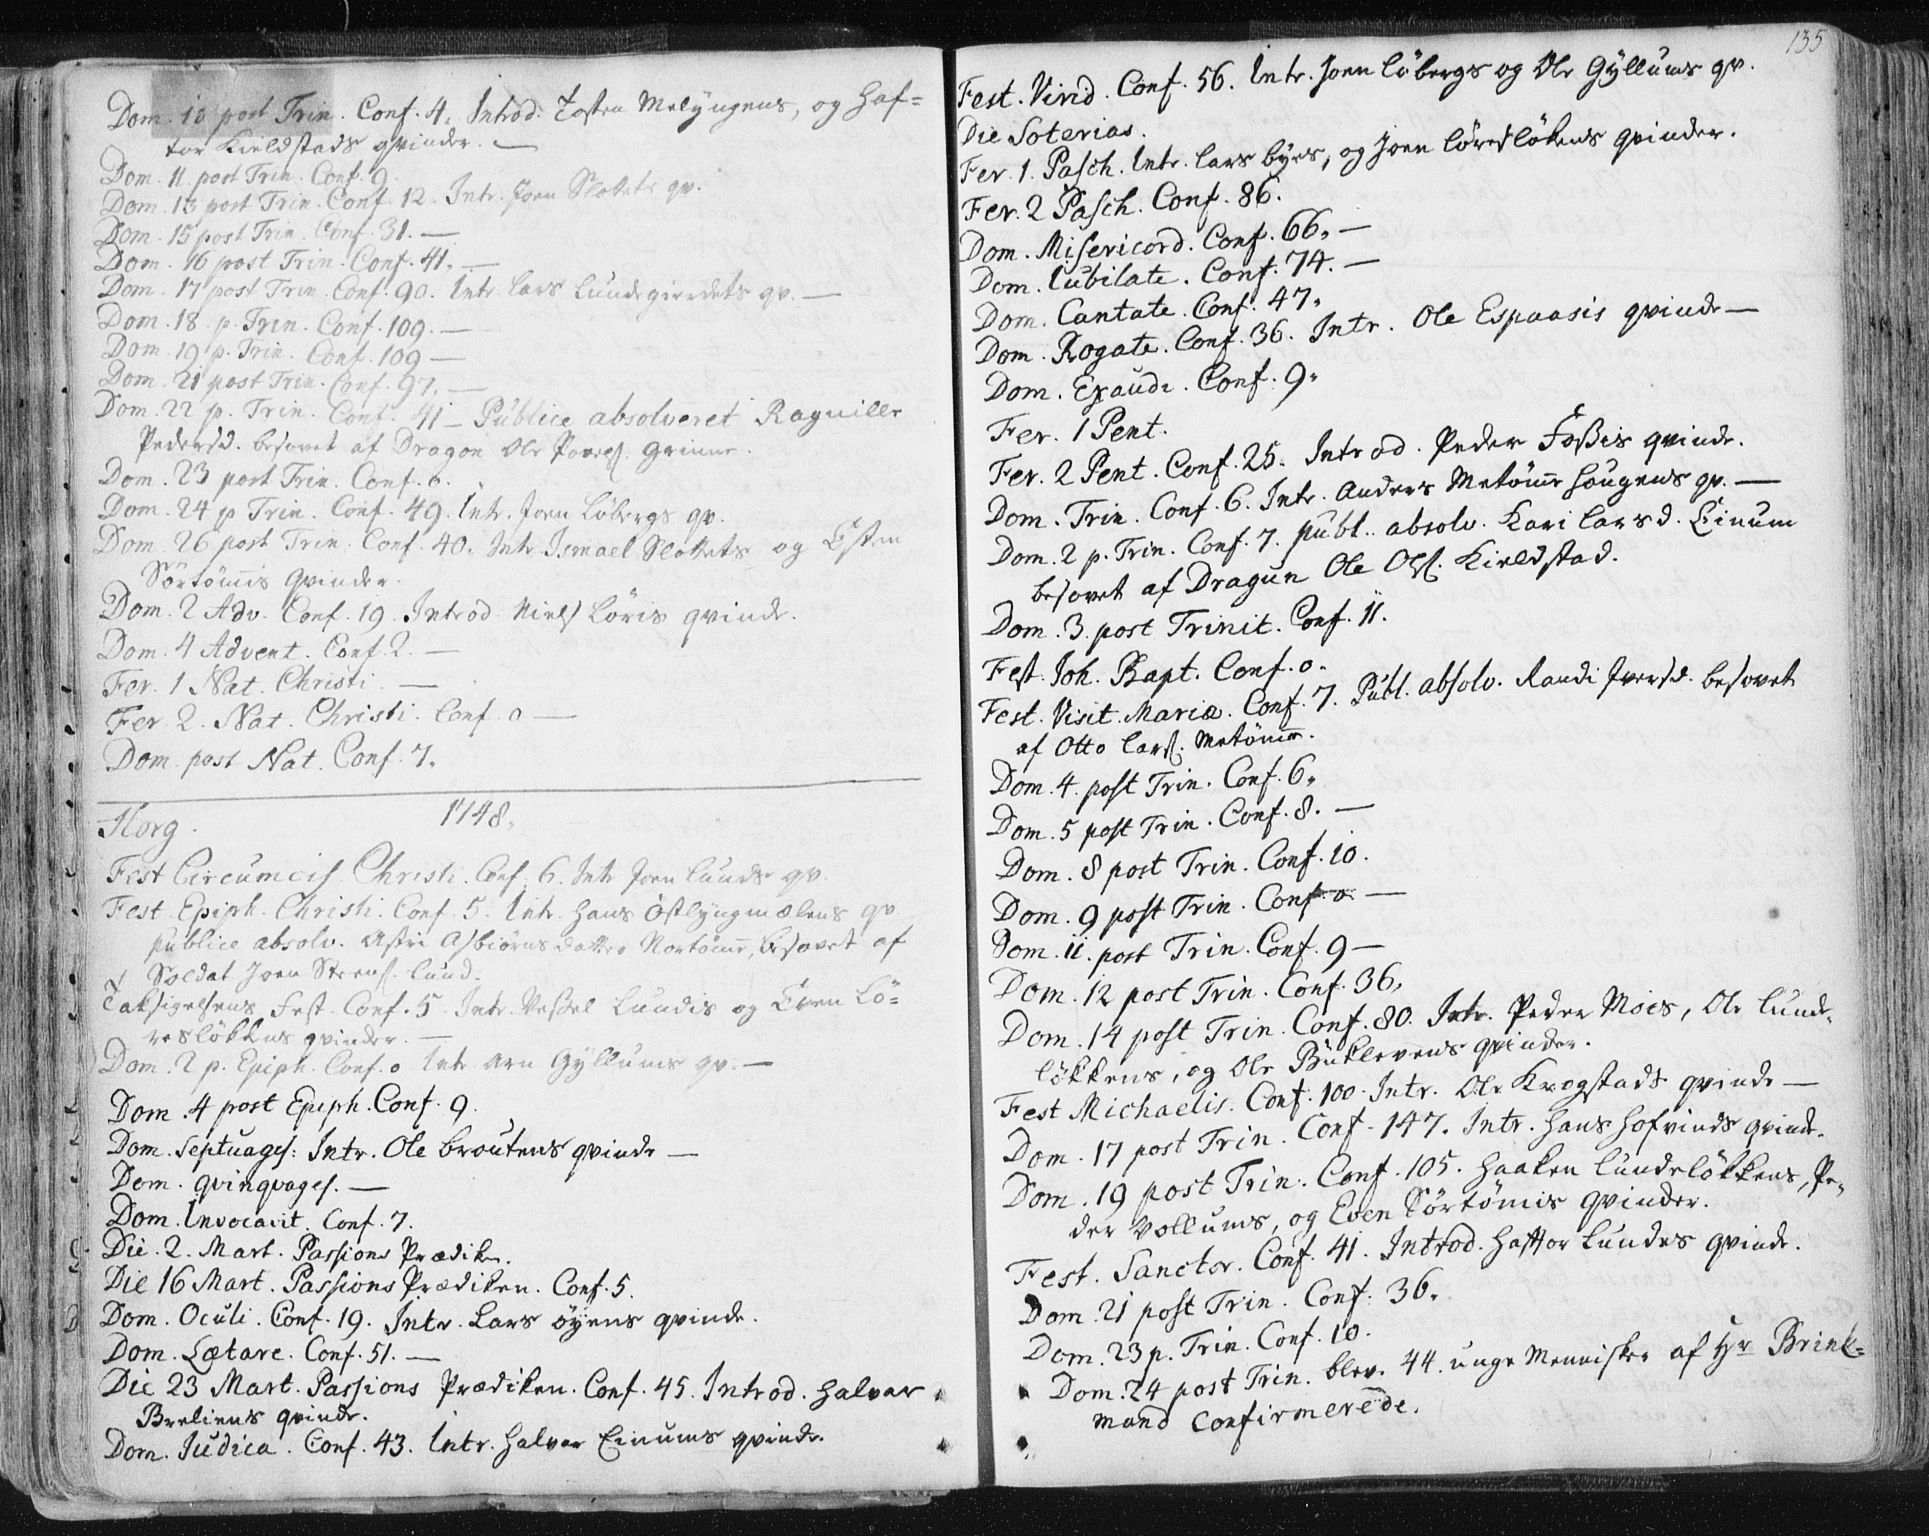 Dom. 10 post Trin. Conf. 4. Introd. Tosten Melhyngens, og Haf=
tor Kieldstads qvinder. —
Dom. 11. post Trin. Conf. 9.
Dom. 13 post Trin. Conf. 12. Intr. Joen Slottets qv.
Dom. 15 post Trin. Conf. 31. —
Dom. 16 post Trin. Conf. 41. —
Dom. 17 post Trin. Conf. 90. Intr. Lars Lundegierdets qv. —
Dom. 18. p. Trin. Conf. 109. —
Dom. 19 p. Trin. Conf. 109 —
Dom. 21 post Trin. Conf. 97. —
Dom. 22 p. Trin. Conf. 41 — Publice absolveret Ragnille
Pedersd. besovet af Dragon Ole Povels. Grinne.
Dom. 23 post Trin. Conf. 0.
Dom. 24 p Trin. Conf. 49. Intr. Joen Löbergs qv.
Dom. 26 post Trin. Conf. 40. Intr. Ismael Slottets og Esten
Sörtömis Qvinder.
Dom. 2 Adv. Conf. 19. Introd. Niels Löris qvinde.
Dom. 4 Advent. Conf. 2. —
Fer. 1 Nat. Christi. —
Fer. 2. Nat. Christi. Conf. 0 —
Dom. post Nat. Conf. 7.
Horg. 1748.
Fest Circumcis. Christi. Conf. 6. Intr Joen Lunds qv.
Fest. Epiph. Christi. Conf. 5. Intr. Hans Östlyngmælens qv
publice absolv. Astri Asbiörnsdatter Nortömme, besovet af
Soldat Joen Steens. Lund.
Taksigelsens Fest. Conf. 5 Intr. Vessel Lundis og Even Lö=
resløkkens qvinder. —
Dom. 2 p. Epiph. Conf. 0 Intr. Arn Gyllums qv. —
Dom. 4 post Epiph. Conf. 9.
Dom. Septuages: Intr. Ole Broutens qvinde —
Dom. Qvinqvages. —
Dom. Invocavit. Conf. 7.
Die. 2. Mart. Passions Prædiken.
Die 16 Mart. Passions Prædiken. Conf. 5.
Dom. Oculi. Conf. 19. Intr. Lars Öyens qvinde.
Dom. Lætare. Conf. 51. —
Die 23 Mart. Passions Prædiken. Conf. 45. Introd. Halvar
Breliens qvinde.
Dom. Judica. Conf. 43. Intr. Halvar Einums qvinde.
135
Fest. Virid. Conf. 56. Intr. Joen Löbergs og Ole Gyllums qv.
Die Soterias.
Fer. 1. Pasch. Intr. Lars Byes, og Joen Löresløkens qvinder.
Fer. 2 Pasch. Conf. 86.
Dom. Misericord. Conf. 66. —
Dom. Jubilate. Conf. 74. —
Dom. Cantate. Conf. 47.
Dom. Rogate. Conf. 36. Intr. Ole Espaasis qvinde —
Dom. Exaudi. Conf. 9.
Fer. 1 Pent.
Fer. 2 Pent. Conf. 25. Introd. Peder Fossis qvinde.
Dom. Trin. Conf. 6. Intr. Anders Metömme Hougens qv. —
Dom. 2 p. Trin. Conf. 7. publ. absolv. Kari Larsd. Einum
besovet af Dragun Ole Ols. Kieldstad.
Dom. 3. post Trinit. Conf. 11.
Fest. Joh. Bapt. Conf. 0.
Fest. Visit. Mariæ. Conf. 7. Publ. absolv. Randi Iversd. besovet
af Otto Lars. Metömme.
Dom. 4. post Trin. Conf. 6.
Dom. 5 post Trin. Conf. 8. —
Dom. 8 post Trin. Conf. 10.
Dom. 9 post Trin. Conf. 0. —
Dom. 11. post Trin. Conf. 9 —
Dom. 12 post Trin. Conf. 36.
Dom. 14 post Trin. Conf. 80. Intr. Peder Moes, Ole Lunde-
løkkens, og Ole Buklevens qvinder.
Fest Michaelis. Conf. 100. Intr. Ole Krogstads qvinde —
Dom. 17 post Trin. Conf. 147. Intr. Hans Hofvinds qvinde.
Dom. 19 post Trin. Conf. 105. Haaken Lundeløkkens, Pe-
der Vollums, og Even Sörtömis qvinder.
Fest. Sanctor. Conf. 41. Introd. Haftor Lundes qvinde.
Dom. 21 post Trin. Conf. 36.
Dom. 23 p. Trin. Conf. 10.
Dom. 24 post Trin. blev. 44. unge Mennisker af Hr Brink=
mand Confirmerede.